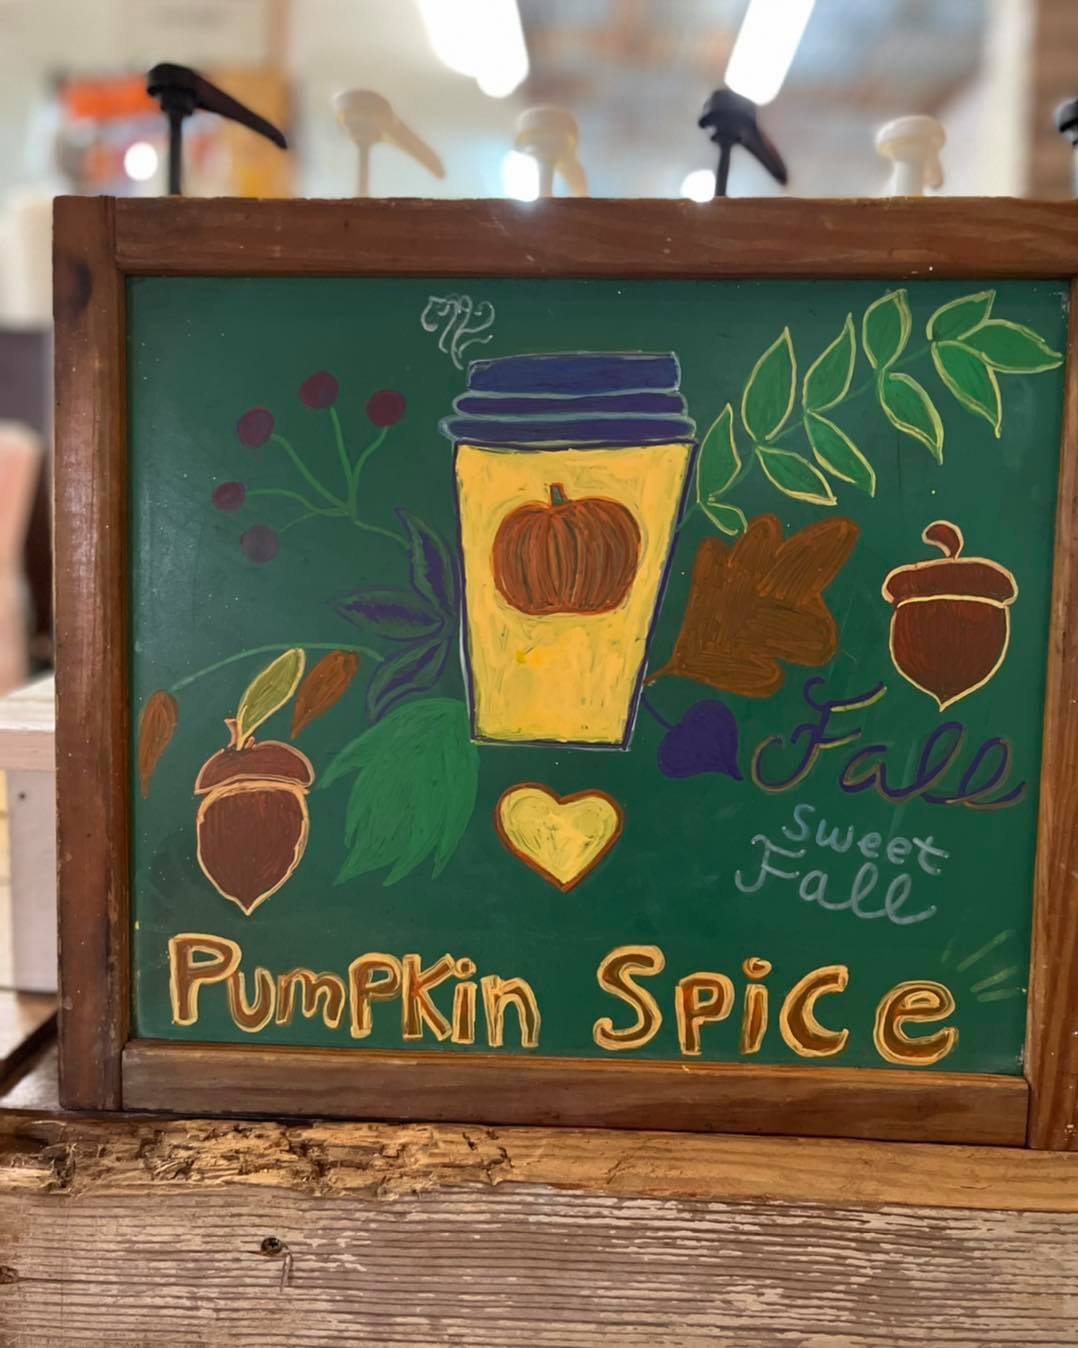 Fall
sweet
Fall
Pumpkin Spice